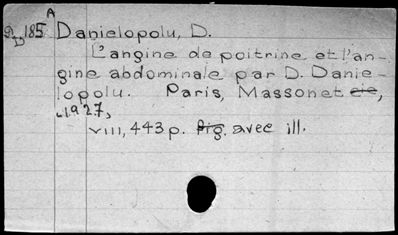 A
D 185 Danielopolu, D.
L'angine de poitrine et l'an-
gine abdominale par D. Danie-
lopolu. Paris, Masson et cie,
1927,
VIII, 443 p. fig. avec ill.